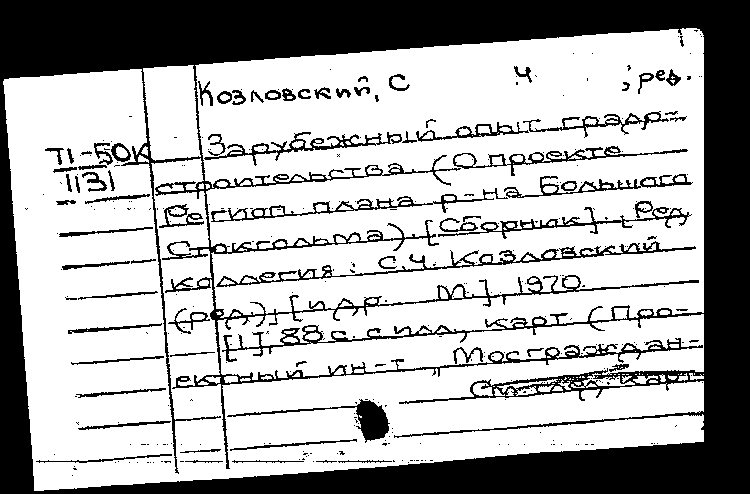 Козловский, С Ч ; ред.
П-50К
1131
Зарубежный опыт градо-
строительства. (О проекте
Регион. плана р-на Большого
Стокгольма). [Сборник]. [Ред
коллегия: С.Ч. Козловский
(ред), [и др. М.], 1970
[1], 88 с. с илл, карт. (Про-
ектный ин-т „Мосграждан-
См. след. карт